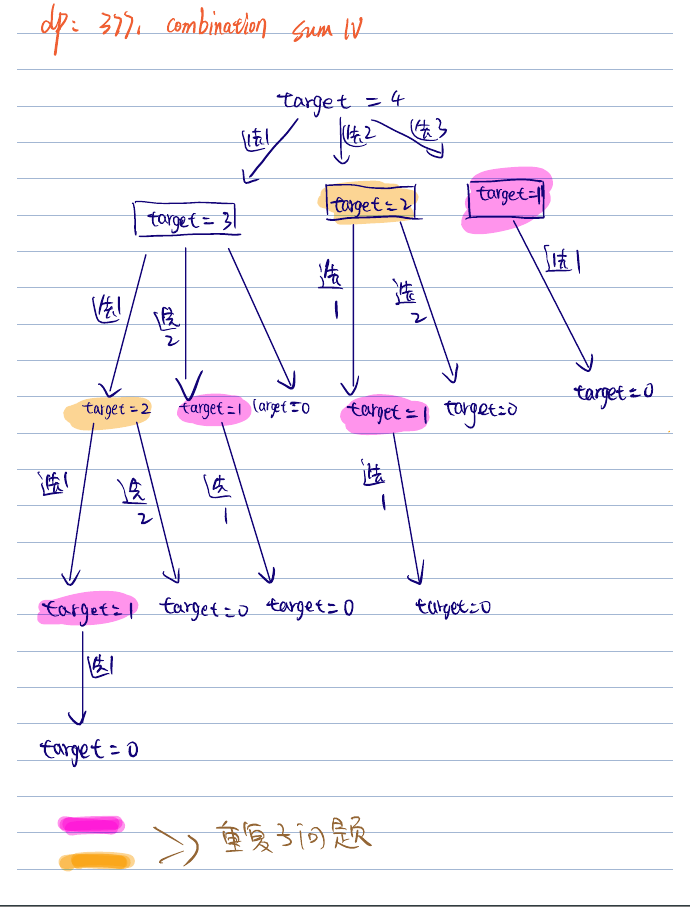 dp: 377. combination sum IV
target = 4
选1 选2 选3
target = 3 target = 2 target = 1
选1 选2 选1 选2 选1
target = 2 target = 1 target = 0 target = 1 target = 0 target = 0
选1 选2 选1 选1
target = 1 target = 0 target = 0 target = 0
选1
target = 0
重复子问题